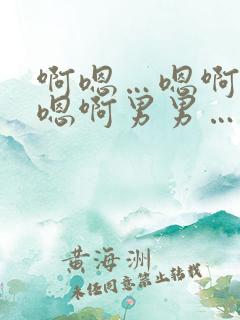 啊嗯…嗯啊
嗯啊男男…
黄海洲
未经同意禁止转载